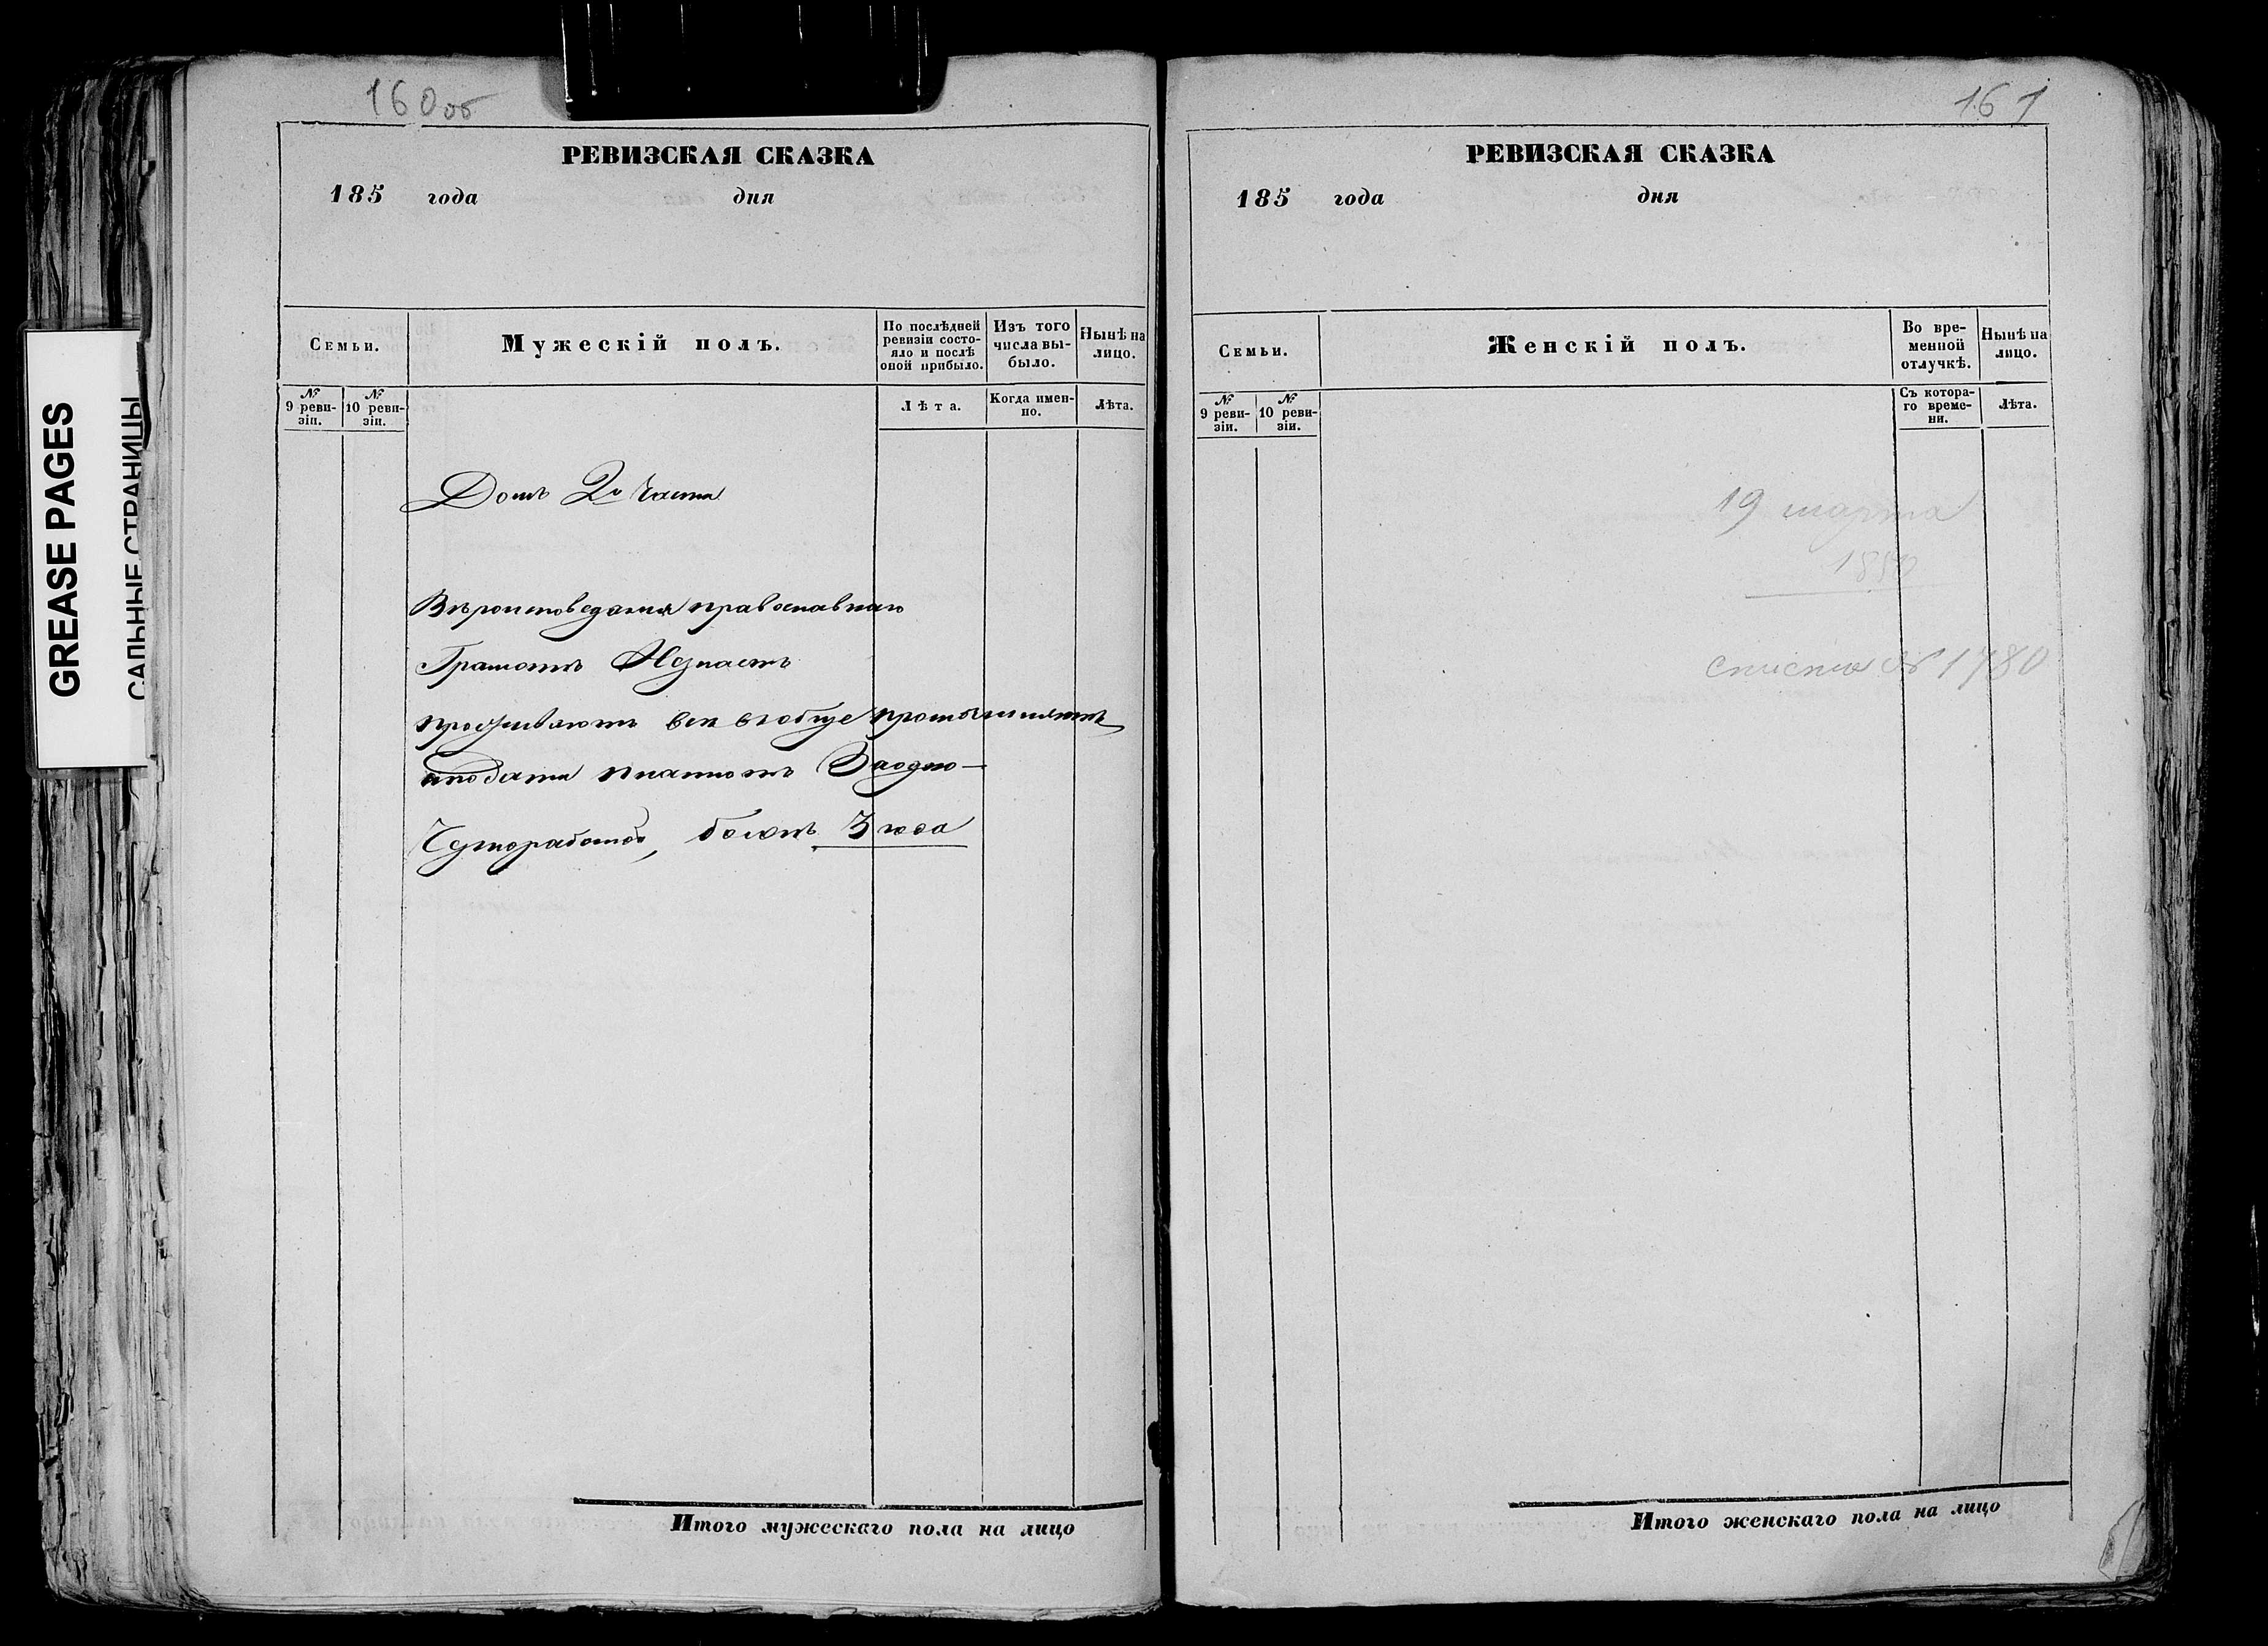 GREASE PAGES
САЛЬНЫЕ СТРАНИЦЫ
160об
РЕВИЗСКАЯ СКАЗКА
185 года дня
Семьи.
Мужескій полъ.
По послѣдней ревизіи состояло и послѣ оной прибыло.
Изъ того числа выбыло.
Нынѣ на лицо.
№ 9 ревизіи.
№ 10 ревизіи.
Лѣта.
Когда именно.
Лѣта.
Домъ 2й части
Вѣроисповеданія православнаго
Грамотѣ Незнаетъ
проживаютъ все вообще
подати платютъ Заодно
болѣе 3 года
Итого мужескаго пола на лицо
161
РЕВИЗСКАЯ СКАЗКА
185 года дня
Семьи.
Женскій полъ.
Во временной отлучкѣ.
Нынѣ на лицо.
№ 9 ревизіи.
№ 10 ревизіи.
Съ котораго времени.
Лѣта.
19 марта
№ 1780
Итого женскаго пола на лицо